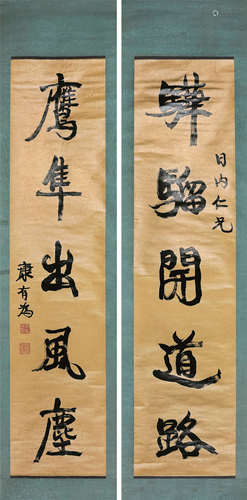 驊騮開道路
日内仁兄
鷹隼出風塵
康有為